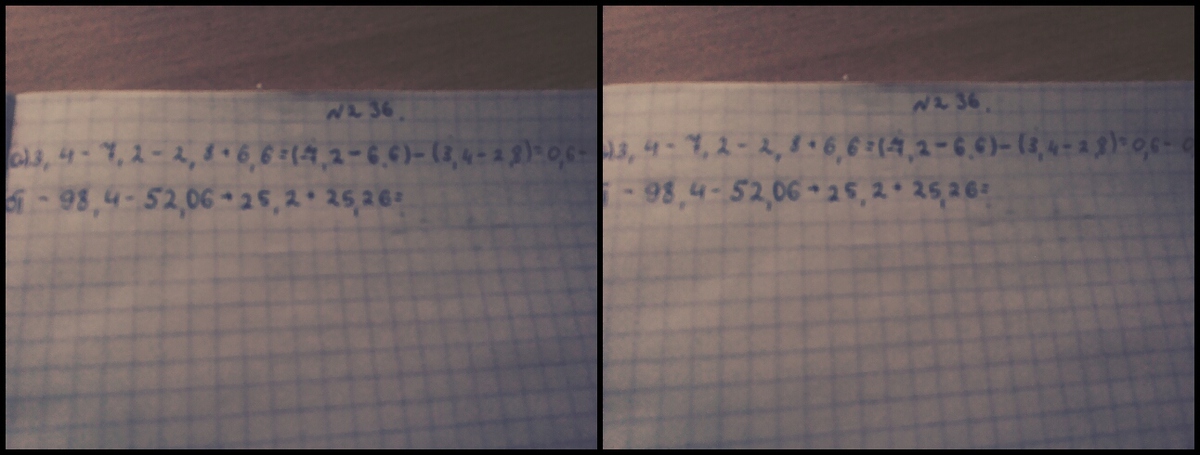 №236.
а) 3,4 - 7,2 - 2,8 + 6,6 = (7,2 - 6,6) - (3,4 - 2,8) = 0,6 -
б) - 98,4 - 52,06 + 25,2 + 25,26 =
№236.
а) 3,4 - 7,2 - 2,8 + 6,6 = (7,2 - 6,6) - (3,4 - 2,8) = 0,6 - 0
- 98,4 - 52,06 + 25,2 + 25,26 =